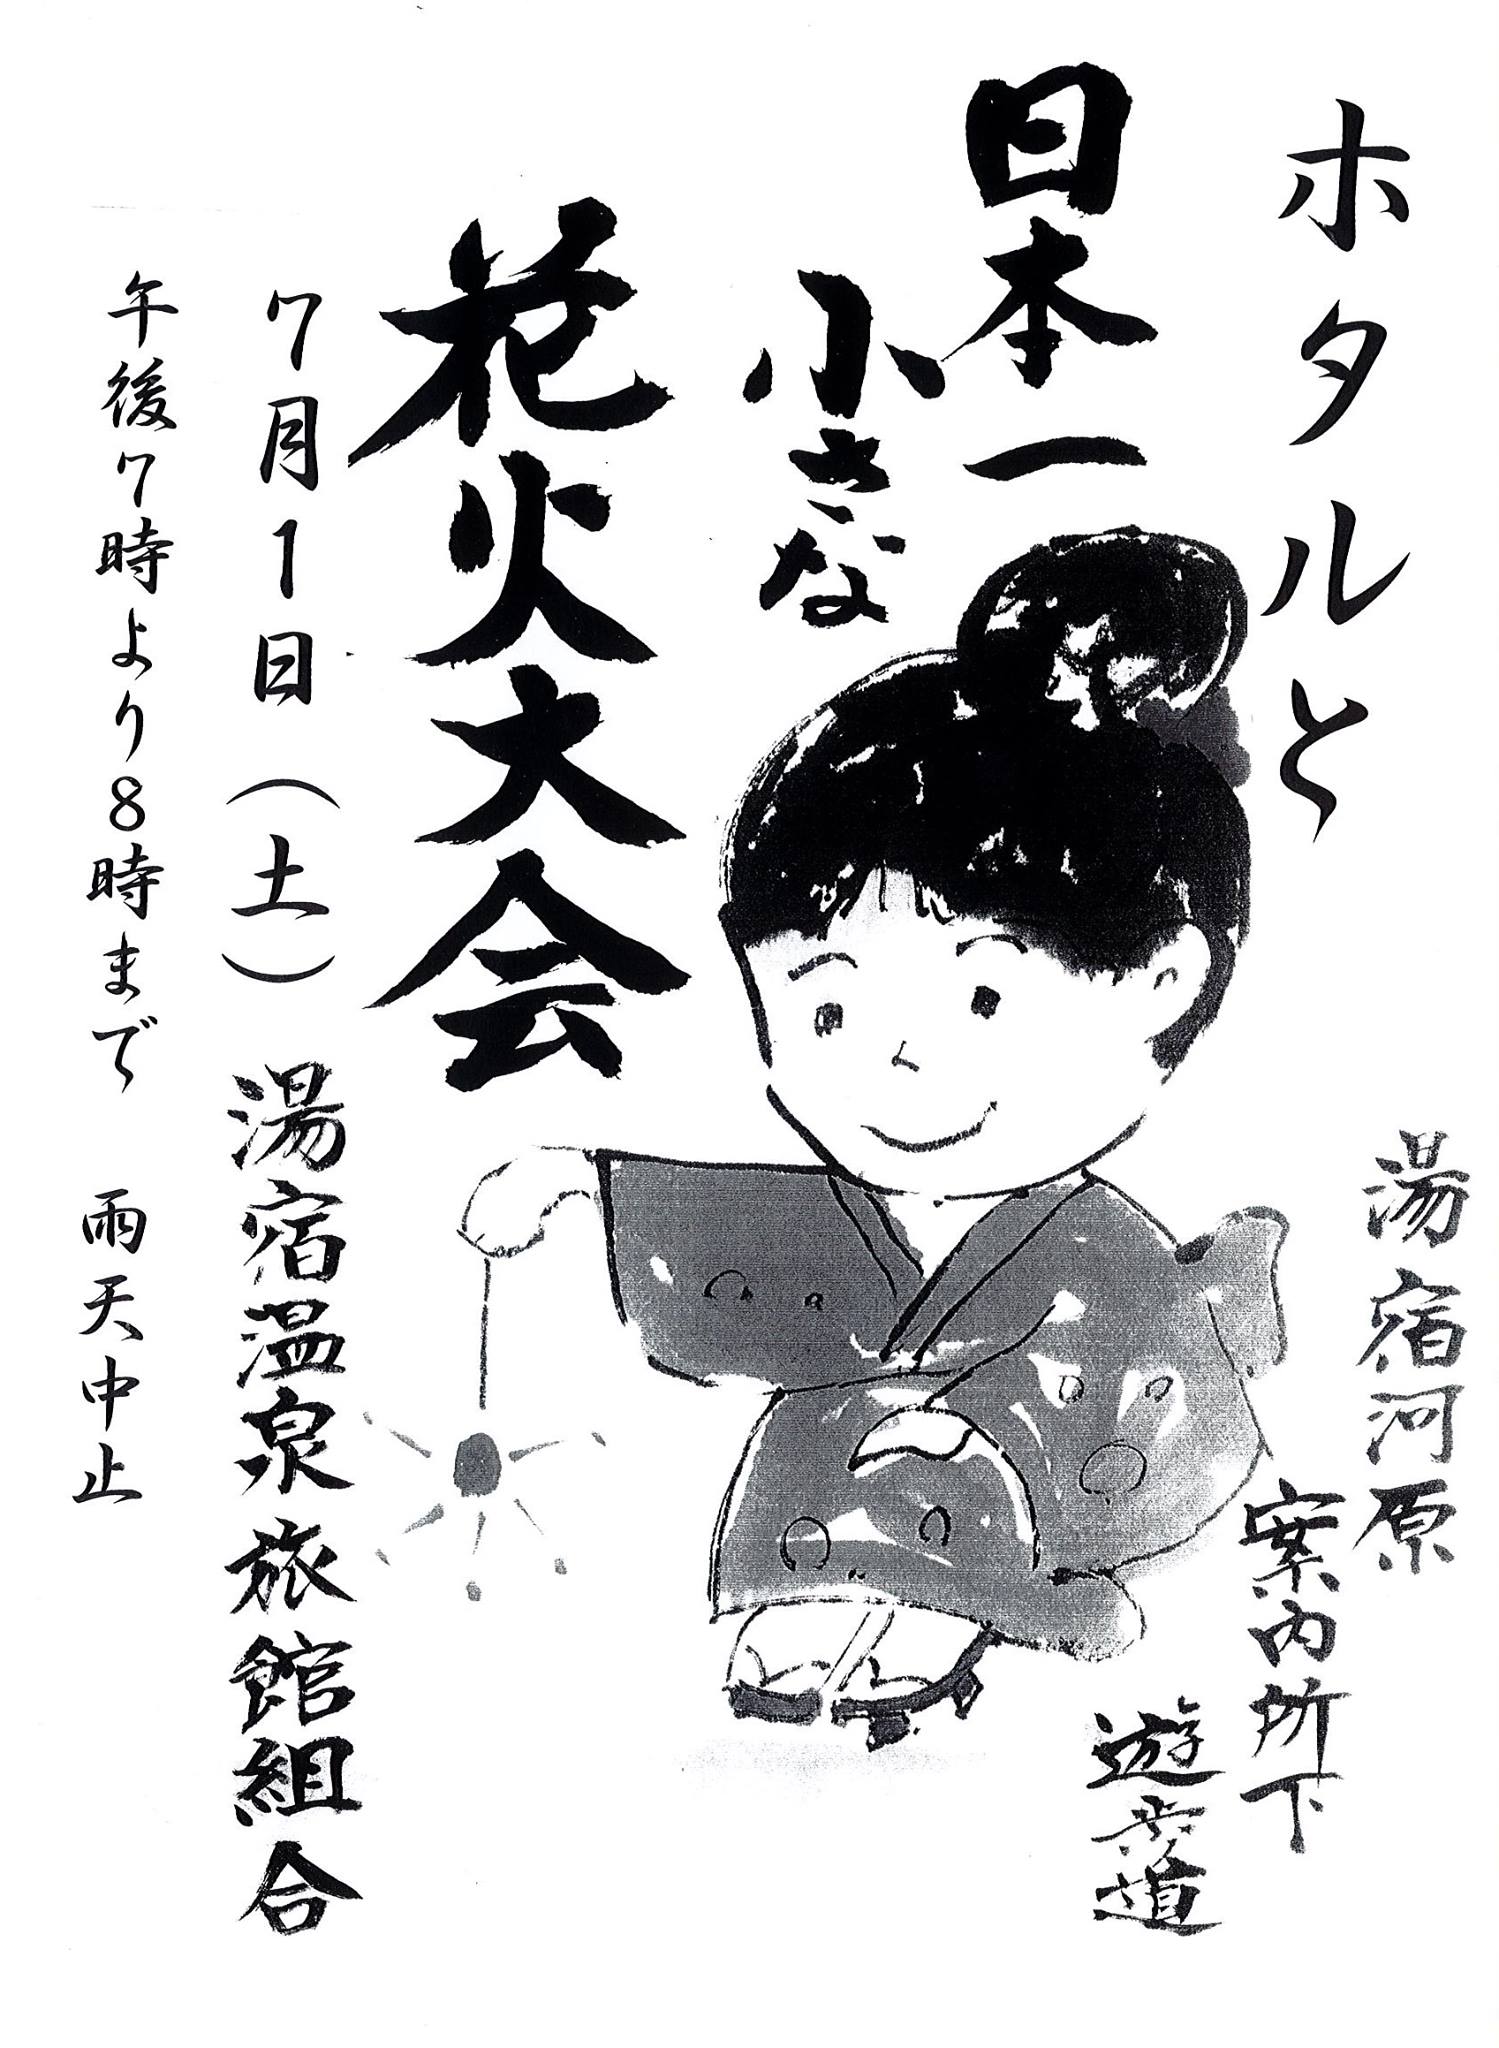 ホタルと
日本一
小さな
花火大会
7月1日(土)
午後7時より8時まで 雨天中止
湯宿温泉旅館組合
湯宿河原
案内所下
遊歩道